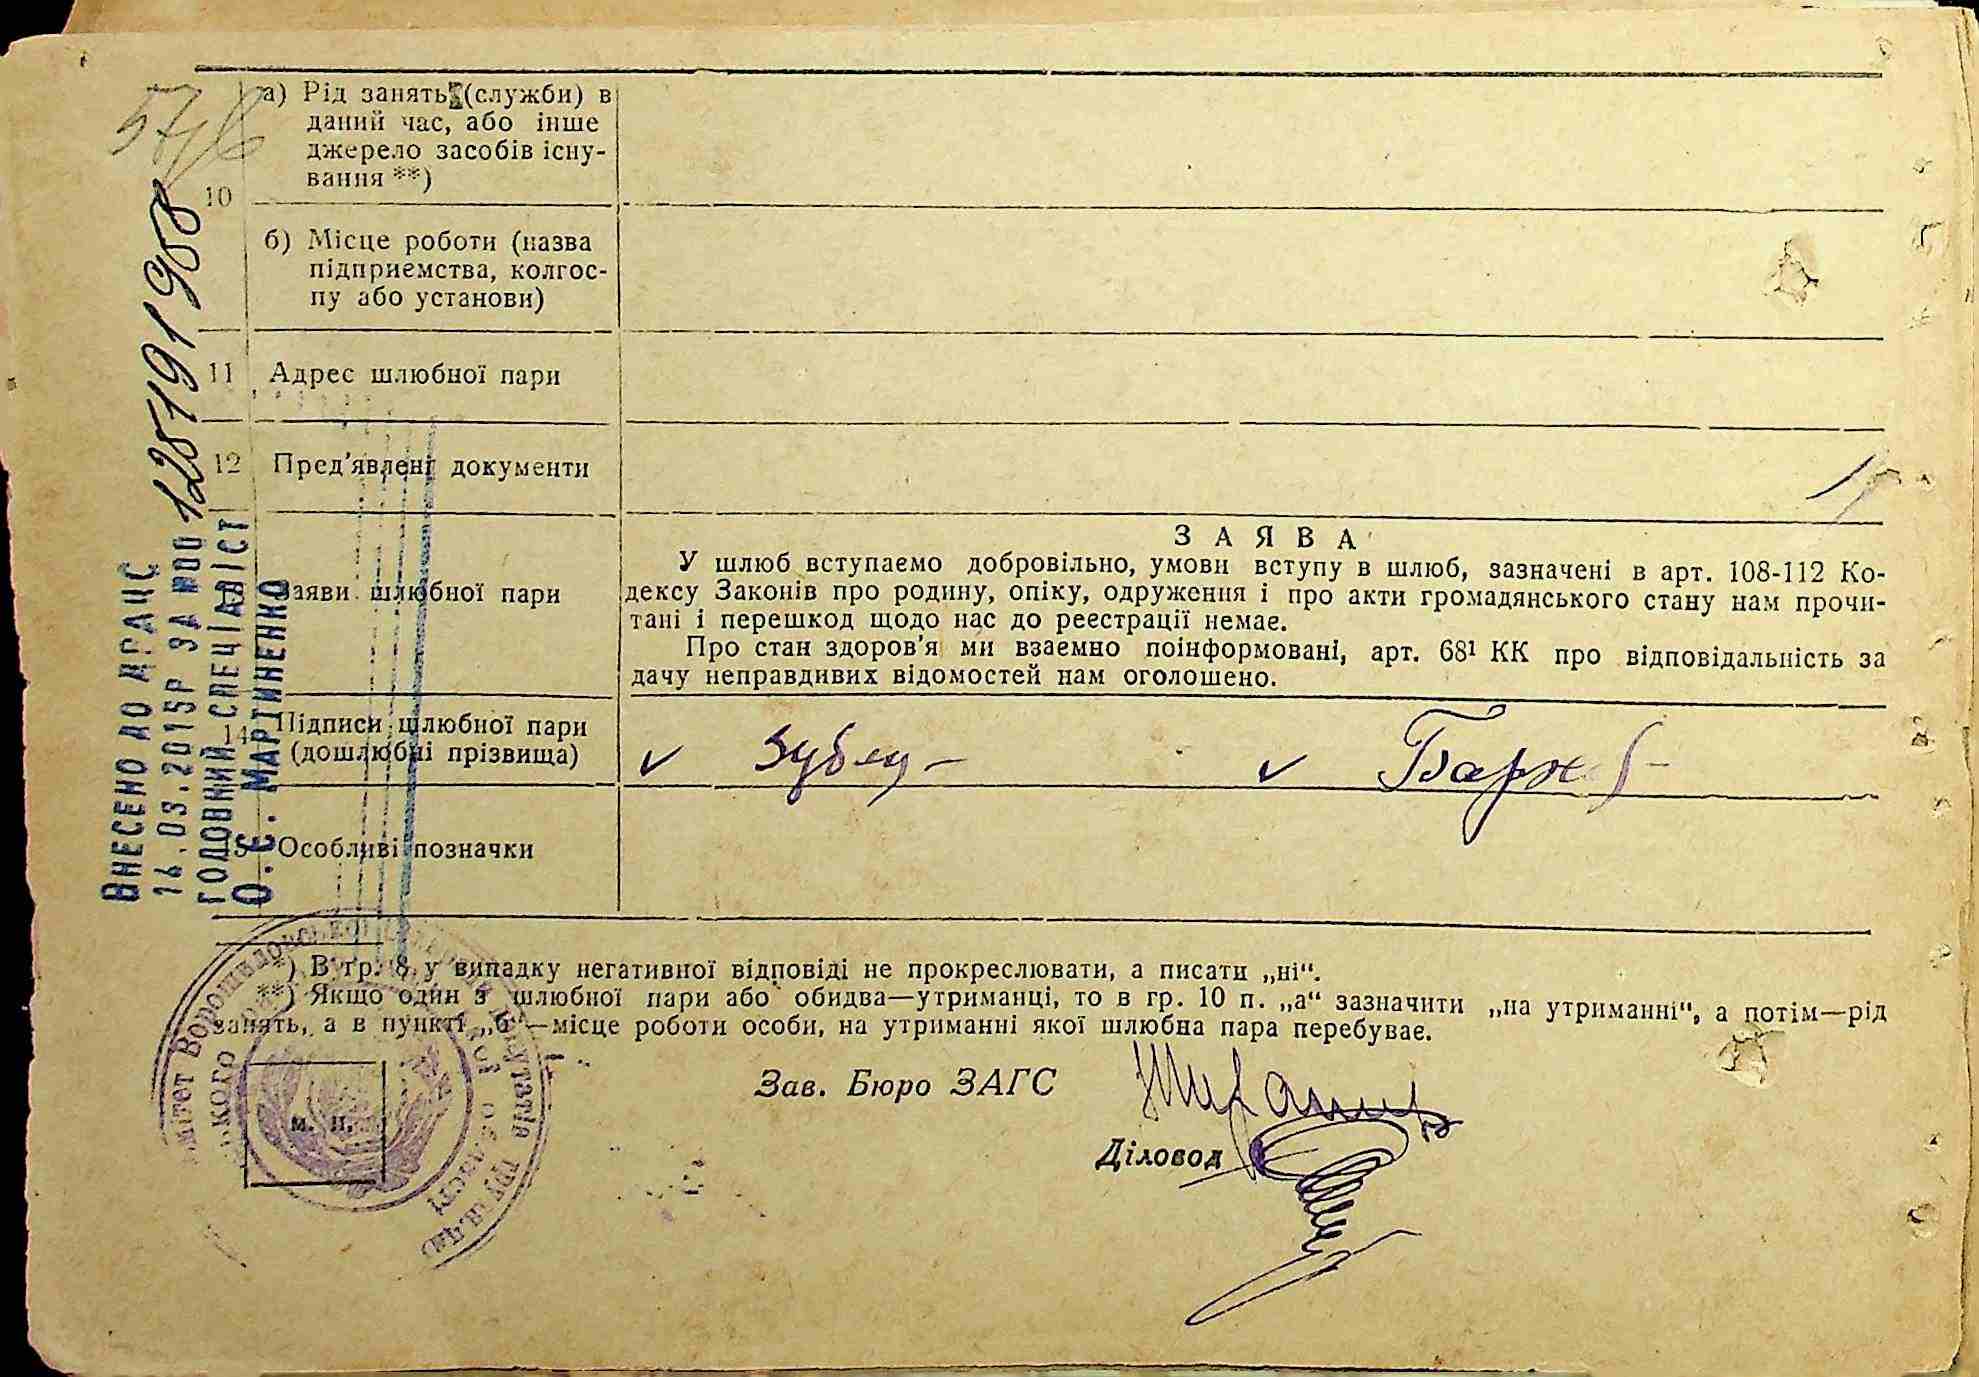 а) Рід занять (служби) в
даний час, або інше
джерело засобів існу-
вання **)
10
б) Місце роботи (назва
підприємства, колгос-
пу або установи)
11 Адрес шлюбної пари
12 Пред'явлені документи
Заяви шлюбної пари
ЗАЯВА
У шлюб вступаємо добровільно, умови вступу в шлюб, зазначені в арт. 108-112 Ко-
дексу Законів про родину, опіку, одруження і про акти громадянського стану нам прочи-
тані і перешкод щодо нас до реєстрації немає.
Про стан здоров'я ми взаємно поінформовані, арт. 68¹ КК про відповідальність за
дачу неправдивих відомостей нам оголошено.
14 Підписи шлюбної пари
(дошлюбні прізвища)
15 Особливі позначки
*) В гр. 8 у випадку негативної відповіді не прокреслювати, а писати „ні“.
**) Якщо один з шлюбної пари або обидва—утриманці, то в гр. 10 п. „а“ зазначити „на утриманні“, а потім—рід
занять, а в пункті „б“—місце роботи особи, на утриманні якої шлюбна пара перебуває.
Зав. Бюро ЗАГС
Діловод
м. п.
ВНЕСЕНО ДО ДРАЦС
14.03.2015Р ЗА №00 1281911988
ГОЛОВНИЙ СПЕЦІАЛІСТ
О.Є. МАРТИНЕНКО